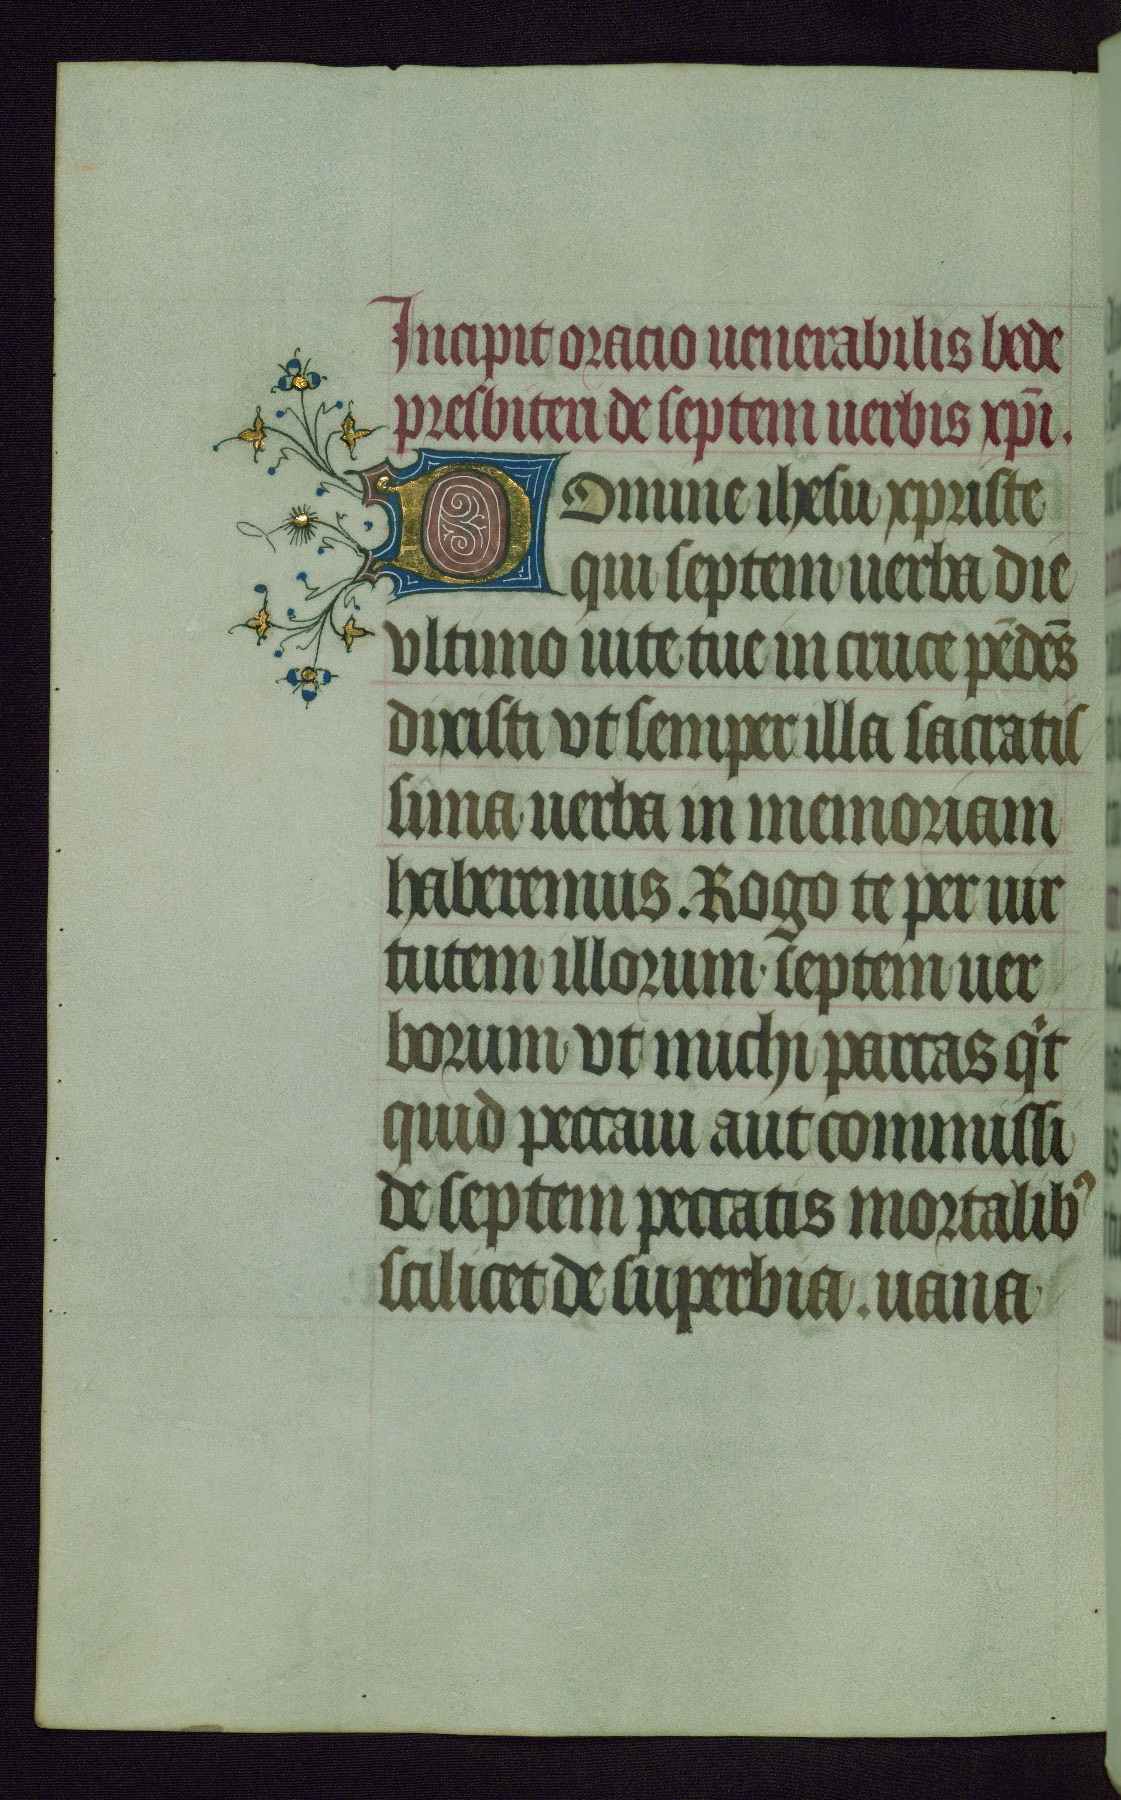 Incipit oracio uenerabilis bede
presbiteri de septem uerbis xp̄i.
Domine ihesu xpriste
qui septem uerba die
vltimo uite tue in cruce pēdēs
dixisti vt semper illa sacratis
sima uerba in memoriam
haberemus. Rogo te per uir
tutem illorum septem uer
borum vt michi parcas qͥt
quid peccaui aut commissi
de septem peccatis mortalibꝰ
scilicet de superbia. uana